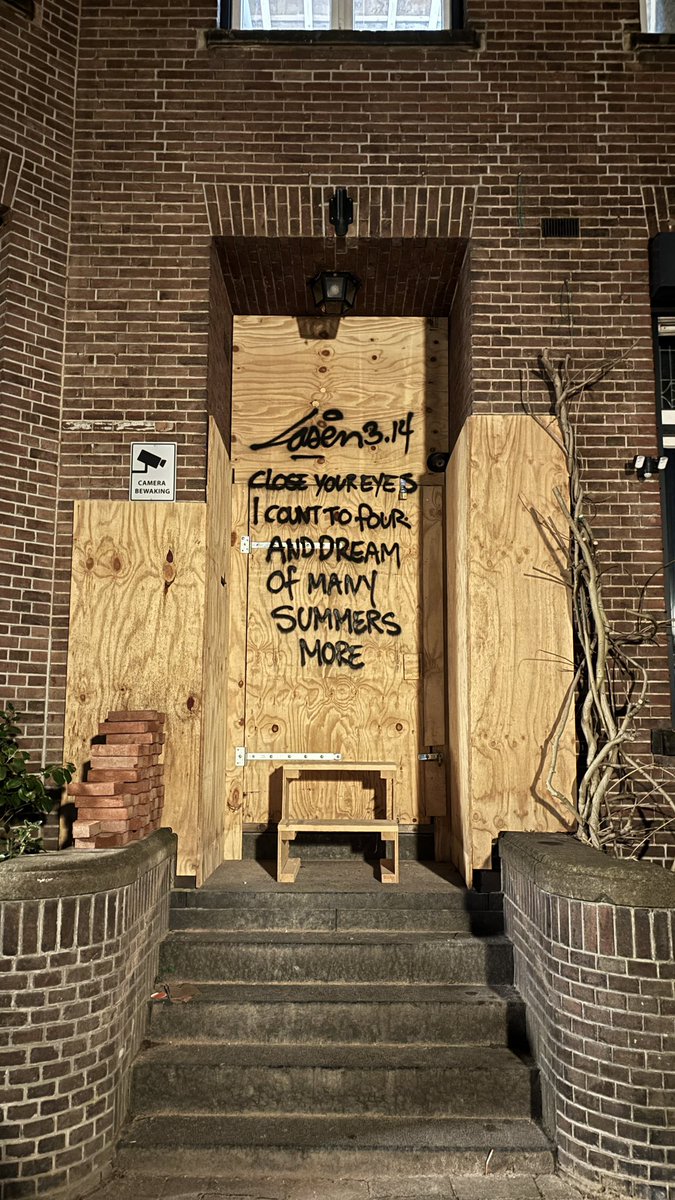 Laser 3.14
CLOSE YOUR EYES
I COUNT TO FOUR
AND DREAM
OF MANY
SUMMERS
MORE
CAMERA
BEWAKING